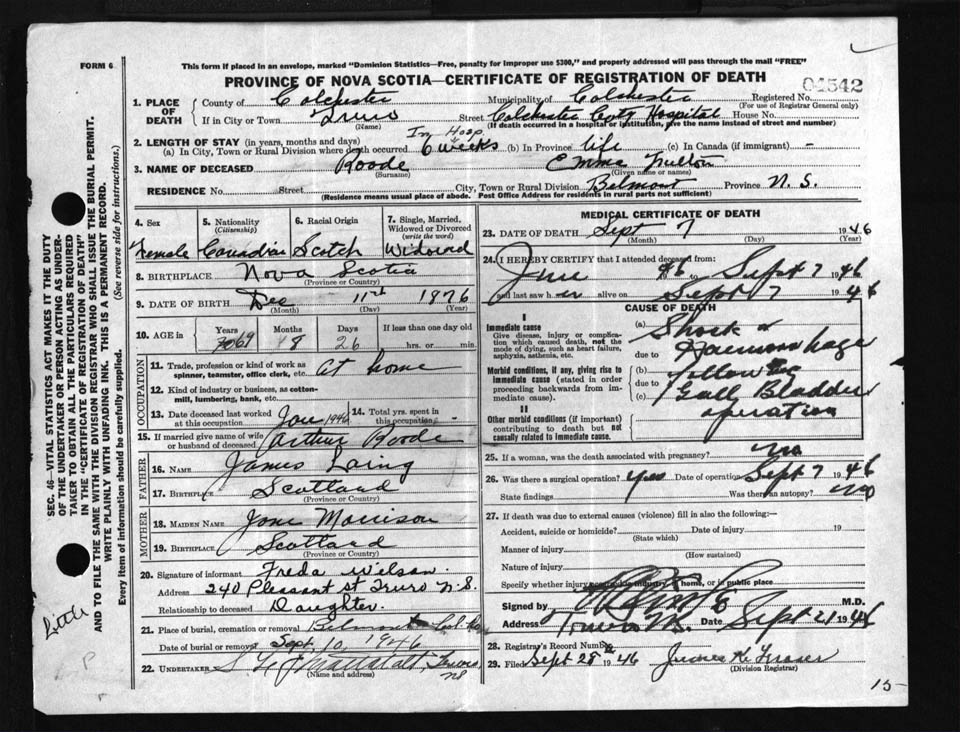 FORM 6
This form if placed in an envelope, marked "Dominion Statistics—Free, penalty for improper use $300," and properly addressed will pass through the mail "FREE"
PROVINCE OF NOVA SCOTIA—CERTIFICATE OF REGISTRATION OF DEATH
04542
1. PLACE OF DEATH County of Colchester Municipality of Colchester Registered No.
(For use of Registrar General only)
If in City or Town Truro Street Colchester Cnty Hospital House No.
(Name) (If death occurred in a hospital or institution, give the name instead of street and number)
2. LENGTH OF STAY (in years, months and days)
(a) In City, Town or Rural Division where death occurred In Hosp. 6 weeks (b) In Province life (c) In Canada (if immigrant) -
3. NAME OF DECEASED Roode Emma
(Surname) (Given name or names)
RESIDENCE No. Street City, Town or Rural Division Belmont Province N. S.
(Residence means usual place of abode. Post Office Address for residents in rural parts not sufficient)
4. Sex Female
5. Nationality (Citizenship) Canadian
6. Racial Origin Scotch
7. Single, Married, Widowed or Divorced (write the word) Widowed
8. BIRTHPLACE Nova Scotia
(Province or Country)
9. DATE OF BIRTH Dec 11th 1876
(Month) (Day) (Year)
10. AGE in Years Months Days If less than one day old
69 8 26 hrs. or min.
OCCUPATION
11. Trade, profession or kind of work as spinner, teamster, office clerk, etc. at home
12. Kind of industry or business, as cotton-mill, lumbering, bank, etc.
13. Date deceased last worked at this occupation Jan 1946
14. Total yrs. spent in this occupation -
15. If married give name of wife or husband of deceased Arthur Roode
FATHER
16. NAME James Laing
17. BIRTHPLACE Scotland
(Province or Country)
MOTHER
18. MAIDEN NAME Jane Morrison
19. BIRTHPLACE Scotland
(Province or Country)
20. Signature of informant Freda Wilson
Address 240 Pleasant St Truro N.S.
Relationship to deceased Daughter
21. Place of burial, cremation or removal Belmont Col. Co.
Date of burial or removal Sept. 10, 1946
22. UNDERTAKER Truro NS
(Name and address)
MEDICAL CERTIFICATE OF DEATH
23. DATE OF DEATH Sept 7 1946
(Month) (Day) (Year)
24. I HEREBY CERTIFY that I attended deceased from:
June 46 to Sept 7 1946
and last saw her alive on Sept 7 1946
CAUSE OF DEATH
I
Immediate cause
Give disease, injury or complication which caused death, not the mode of dying, such as heart failure, asphyxia, asthenia, etc.
Morbid conditions, if any, giving rise to immediate cause (stated in order proceeding backwards from immediate cause).
II
Other morbid conditions (if important) contributing to death but not causally related to immediate cause.
(a) Shock &
due to Haemorrhage
(b) following
due to
(c) Gall Bladder
operation
25. If a woman, was the death associated with pregnancy? no
26. Was there a surgical operation? yes Date of operation Sept 7 1946
State findings Was there an autopsy? no
27. If death was due to external causes (violence) fill in also the following:—
Accident, suicide or homicide? Date of injury 19
(State which)
Manner of injury
(How sustained)
Nature of injury
Specify whether injury occurred in industry, home, or in public place
Signed by M.D.
Address Truro N.S. Date Sept 21 1946
28. Registrar's Record Number
29. Filed Sept 28 1946 James K. Fraser
(Division Registrar)
15-
SEC. 46—VITAL STATISTICS ACT MAKES IT THE DUTY
OF THE UNDERTAKER OR PERSON ACTING AS UNDERTAKER
TO OBTAIN ALL THE PARTICULARS REQUIRED
IN THE "CERTIFICATE OF REGISTRATION OF DEATH"
AND TO FILE THE SAME WITH THE DIVISION REGISTRAR WHO SHALL ISSUE THE BURIAL PERMIT.
WRITE PLAINLY WITH UNFADING INK. THIS IS A PERMANENT RECORD.
Every item of information should be carefully supplied. (See reverse side for instructions.)
P